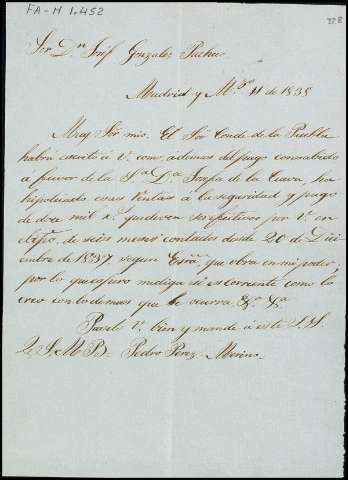 FA-M 1.452
Sor Dn José Gonzalez
Madrid y Mzo 11 de 1838
Muy Sor mio. El Sor Conde de la Puebla
habrá escrito á V. como, ademas del pago consabido
á favor de la Sa Da Josefa de la Cueva, ha
hipotecado esas rentas á la seguridad y pago
de doce mil que deven satisfacerse por V. en
el de seis meses contados desde 20 de Dici
embre de 1837, segun Essra que obra en mi poder,
por lo que espero me diga si es corriente como lo
creo con lo demas que le ocurra &a &a
Paselo V. bien y mande á este S. S.
Q. S. M. B. Pedro Perez Merino